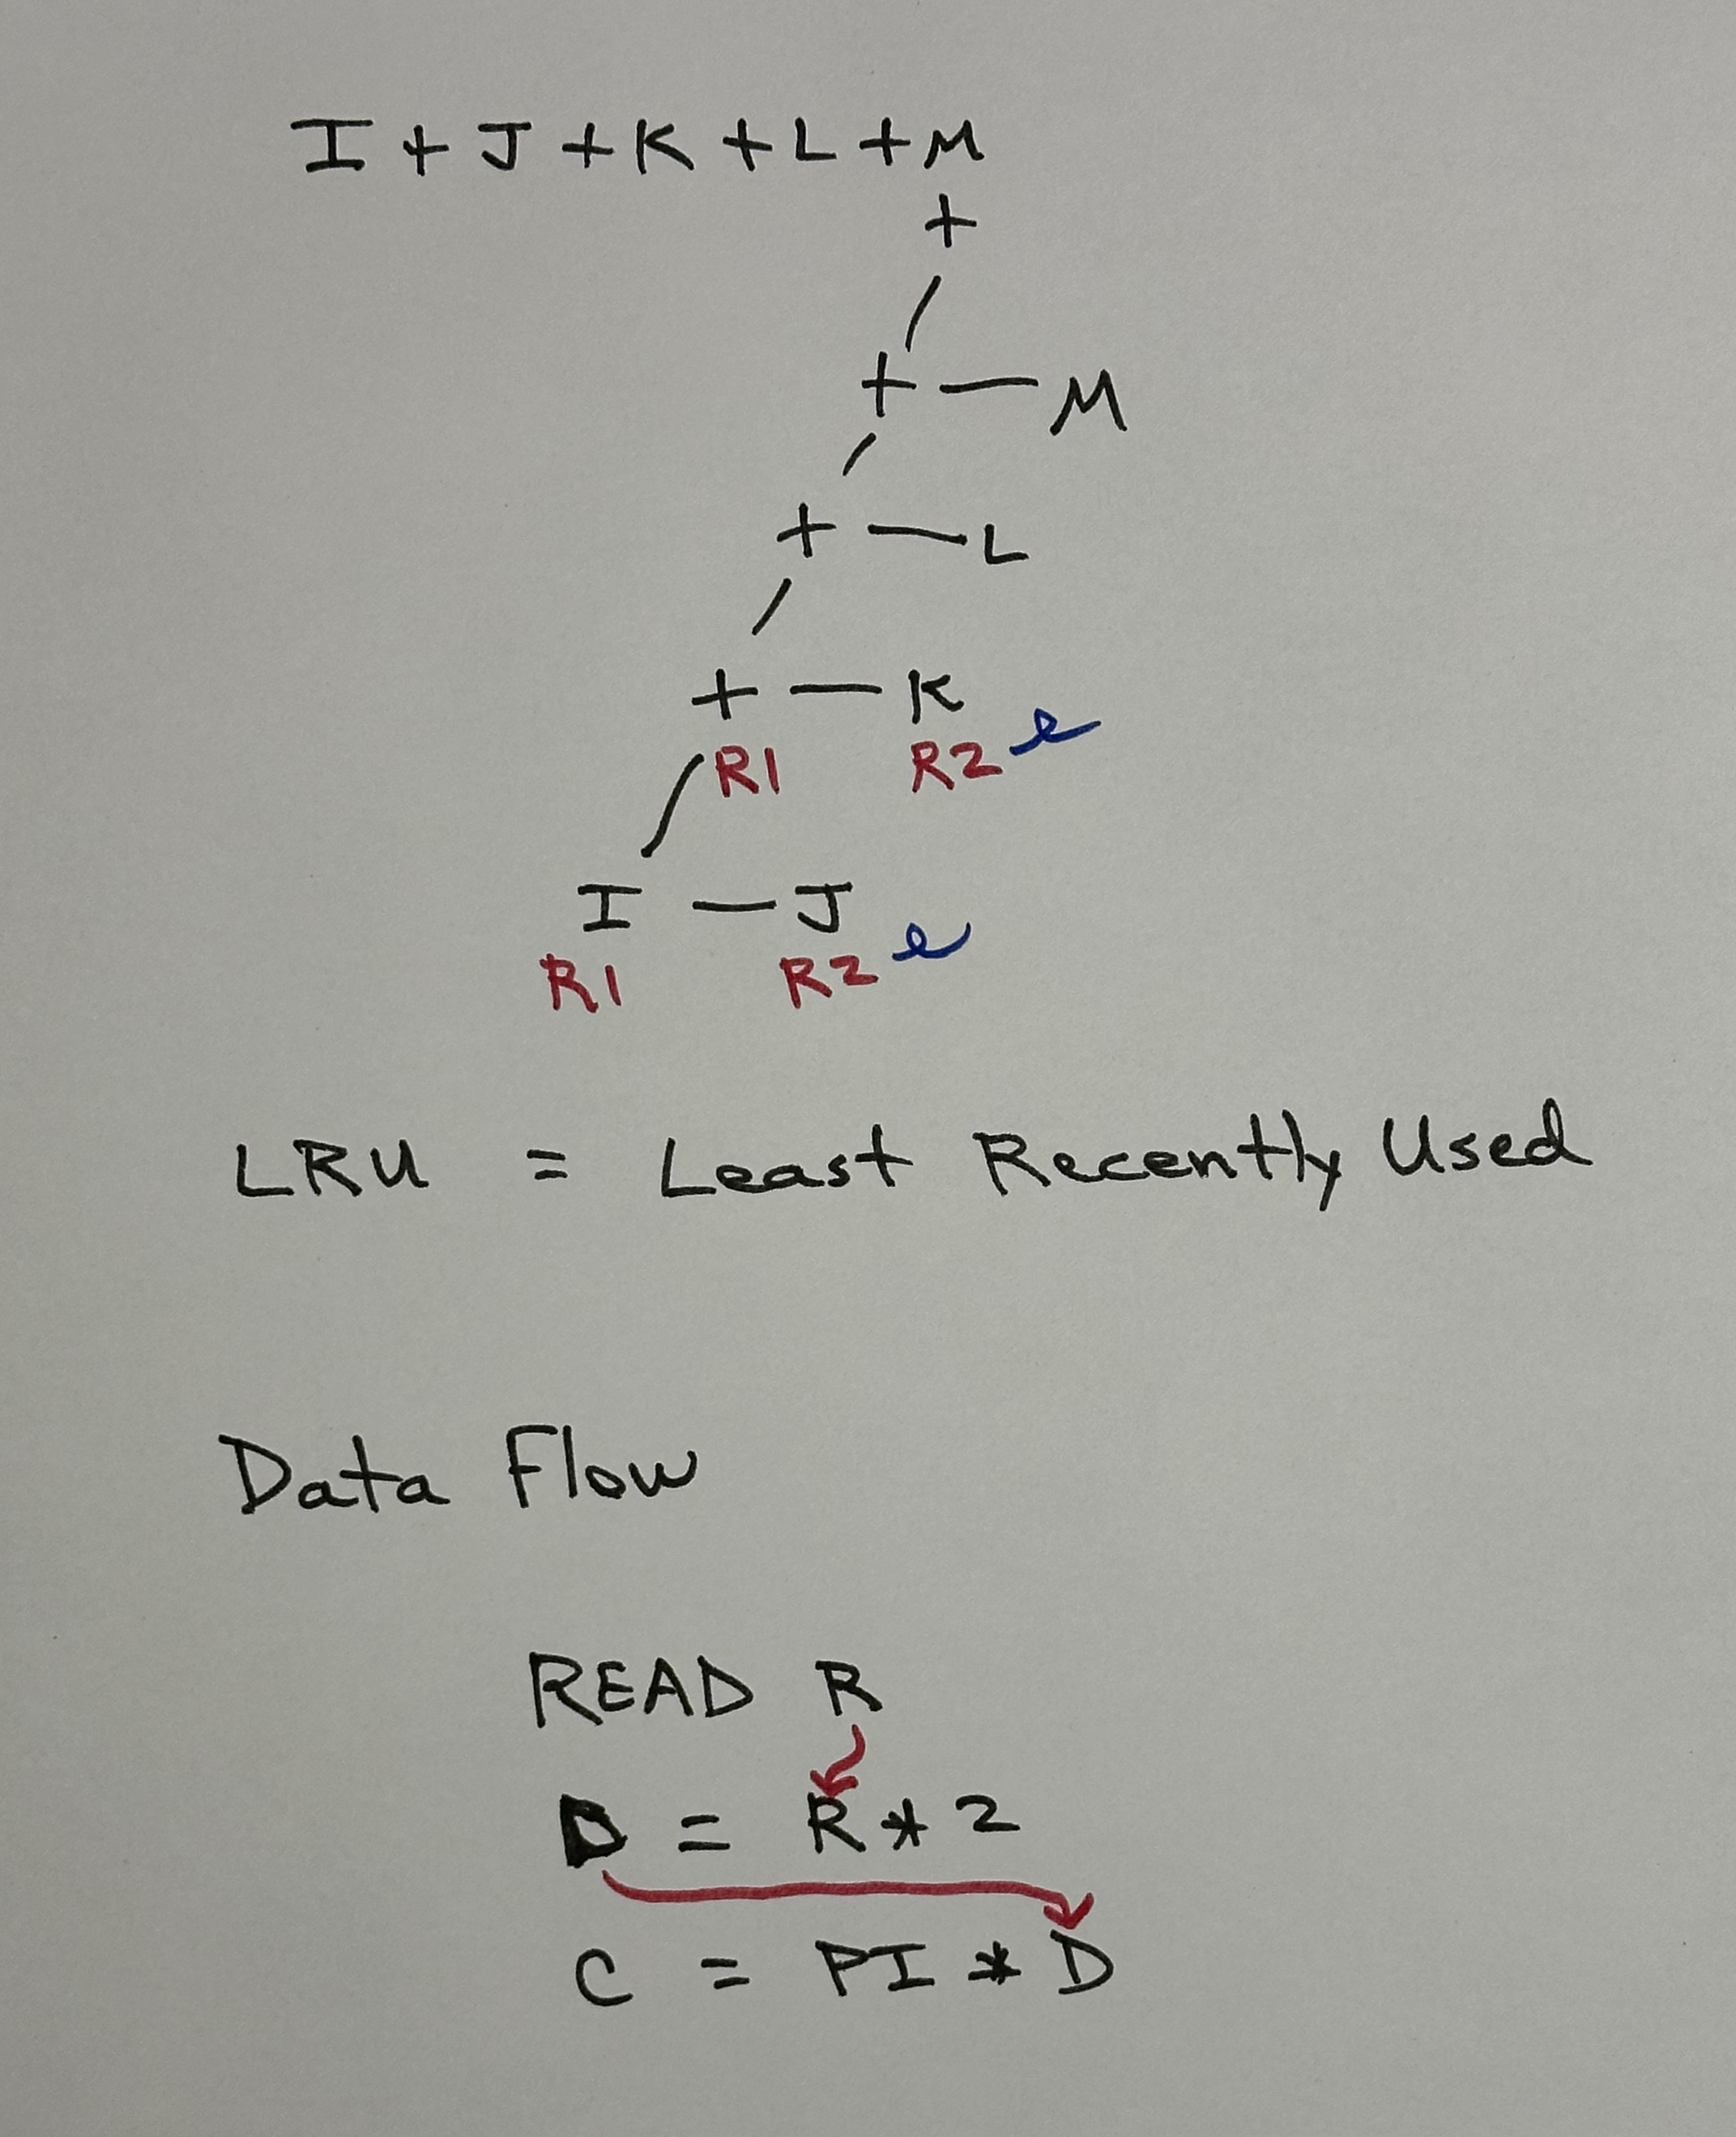 I + J + K + L + M
+
+ — M
+ — L
+ — K
R1 R2
I — J
R1 R2
LRU = Least Recently Used
Data Flow
READ R
D = R * 2
C = PI * D